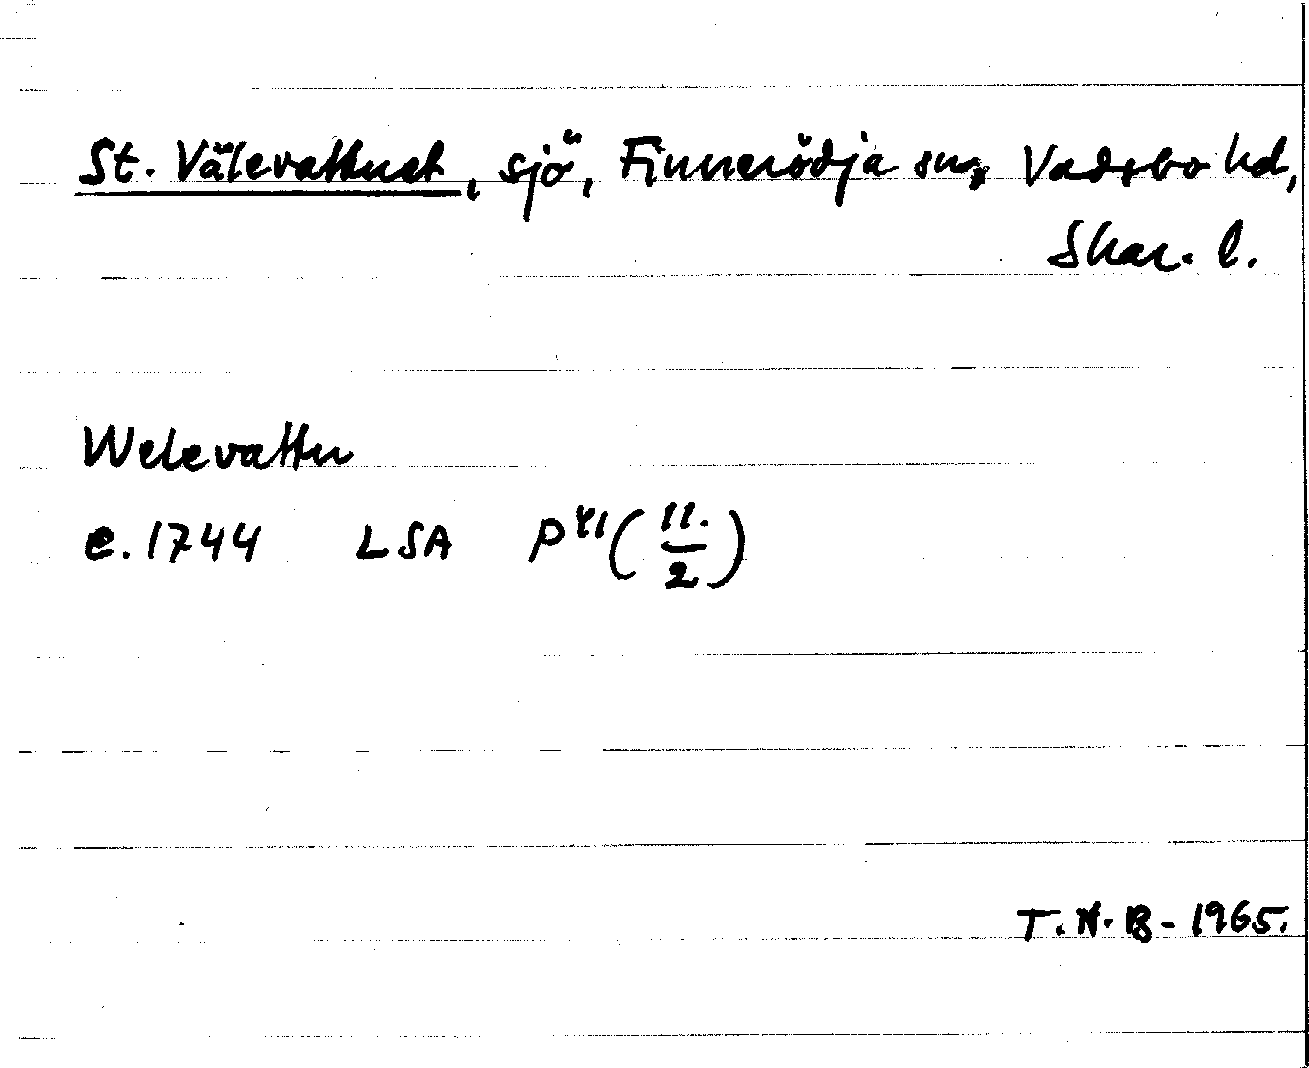 St. Välevattnet, sjö, Finnerödja sn, Vadsbo hd,
Skar. l.
Welevattn
e. 1744 LSA P 41 (11./2)
T.N.B - 1965.